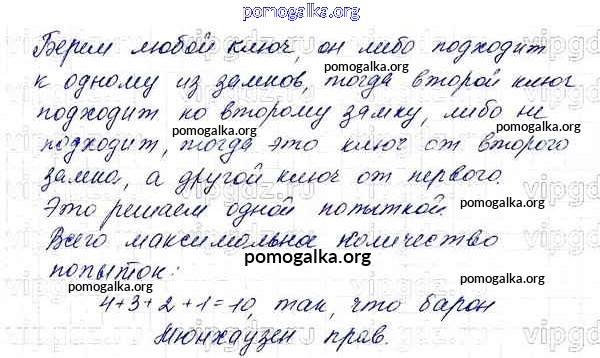 pomogalka.org
Берем любой ключ, он либо подходит
pomogalka.org
к одному из замков, тогда второй ключ
подходит ко второму замку, либо не
pomogalka.org
pomogalka.org
подходит, тогда это ключ от второго
замка, а другой ключ от первого.
pomogalka.org
Это решаем одной попыткой.
pomogalka.org
Всего максимальное количество
попыток:
pomogalka.org
pomogalka.org
4+3+2+1=10, так, что барон
Мюнхаузен прав.
pomogalka.org